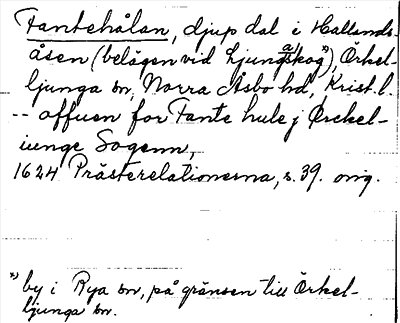 Fantehålan, djup dal i Hallands-
åsen (belägen vid Ljungaskog*), Örkel-
ljunga sn, Norra Åsbo hd, Krist. l.
-- offuen for Fante hule j Ørckel-
iunge Sogenn,
1624 Prästerelationerna, s. 39. orig.
*) by i Rya sn, på gränsen till Örkel-
ljunga sn.